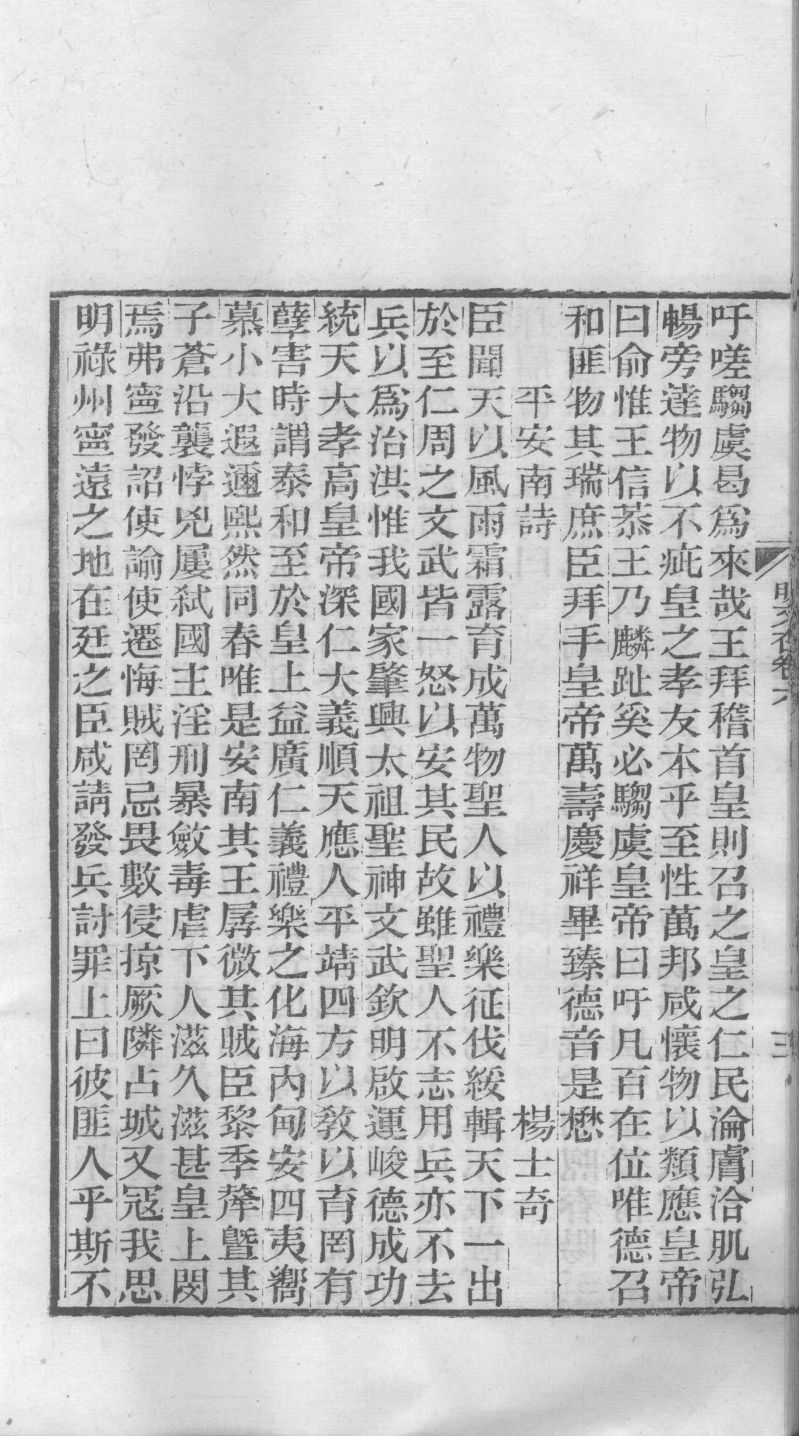 吁嗟騶虞曷爲來哉王拜稽首皇則召之皇之仁民淪膚洽肌弘
暢旁達物以不疵皇之孝友本乎至性萬邦咸懷物以類應皇帝
曰俞惟王信恭王乃麟趾奚必騶虞皇帝曰吁凡百在位唯德召
和匪物其瑞庶臣拜手皇帝萬壽慶祥畢臻德音是懋
平安南詩 楊士奇
臣聞天以風雨霜露育成萬物聖人以禮樂征伐綏輯天下一出
於至仁周之文武皆一怒以安其民故雖聖人不志用兵亦不去
兵以爲治洪惟我國家肇興太祖聖神文武欽明啟運峻德成功
統天大孝高皇帝深仁大義順天應人平靖四方以敎以育罔有
孽害時謂泰和至於皇上益廣仁義禮樂之化海內甸安四夷嚮
慕小大遐邇熙然同春唯是安南其王孱微其賊臣黎季犛暨其
子蒼沿襲悖兇屢弑國主淫刑暴斂毒虐下人滋久滋甚皇上閔
焉弗寍發詔使諭使遷悔賊罔忌畏數侵掠厥隣占城又冦我思
明祿州寍遠之地在廷之臣咸請發兵討罪上曰彼匪人乎斯不
明文在卷六
三